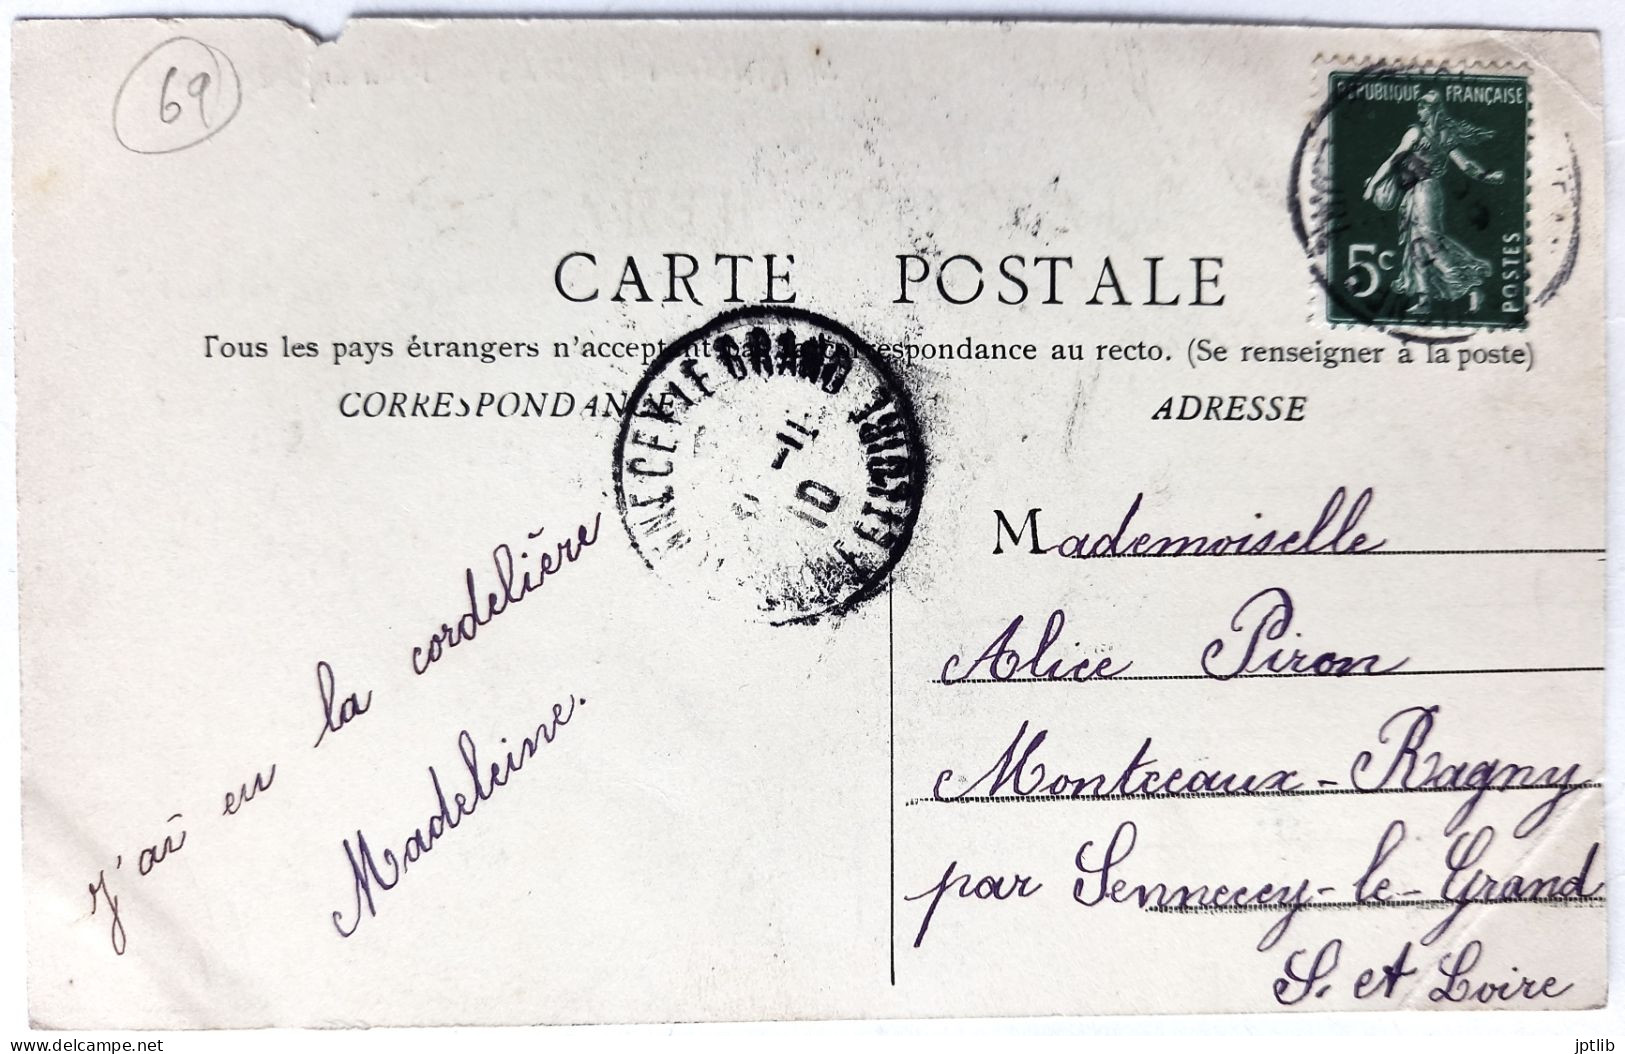 69
RÉPUBLIQUE FRANÇAISE
5c
POSTES
CARTE POSTALE
Tous les pays étrangers n'acceptent pas la correspondance au recto. (Se renseigner à la poste)
CORRESPONDANCE
ADRESSE
GRAND
-11
10
ET LOIRE
J'ai eu la cordelière
Madeleine.
Mademoiselle
Alice Piron
Montceaux-Ragny
par Sennecey-le-Grand
S. et Loire
jptlib